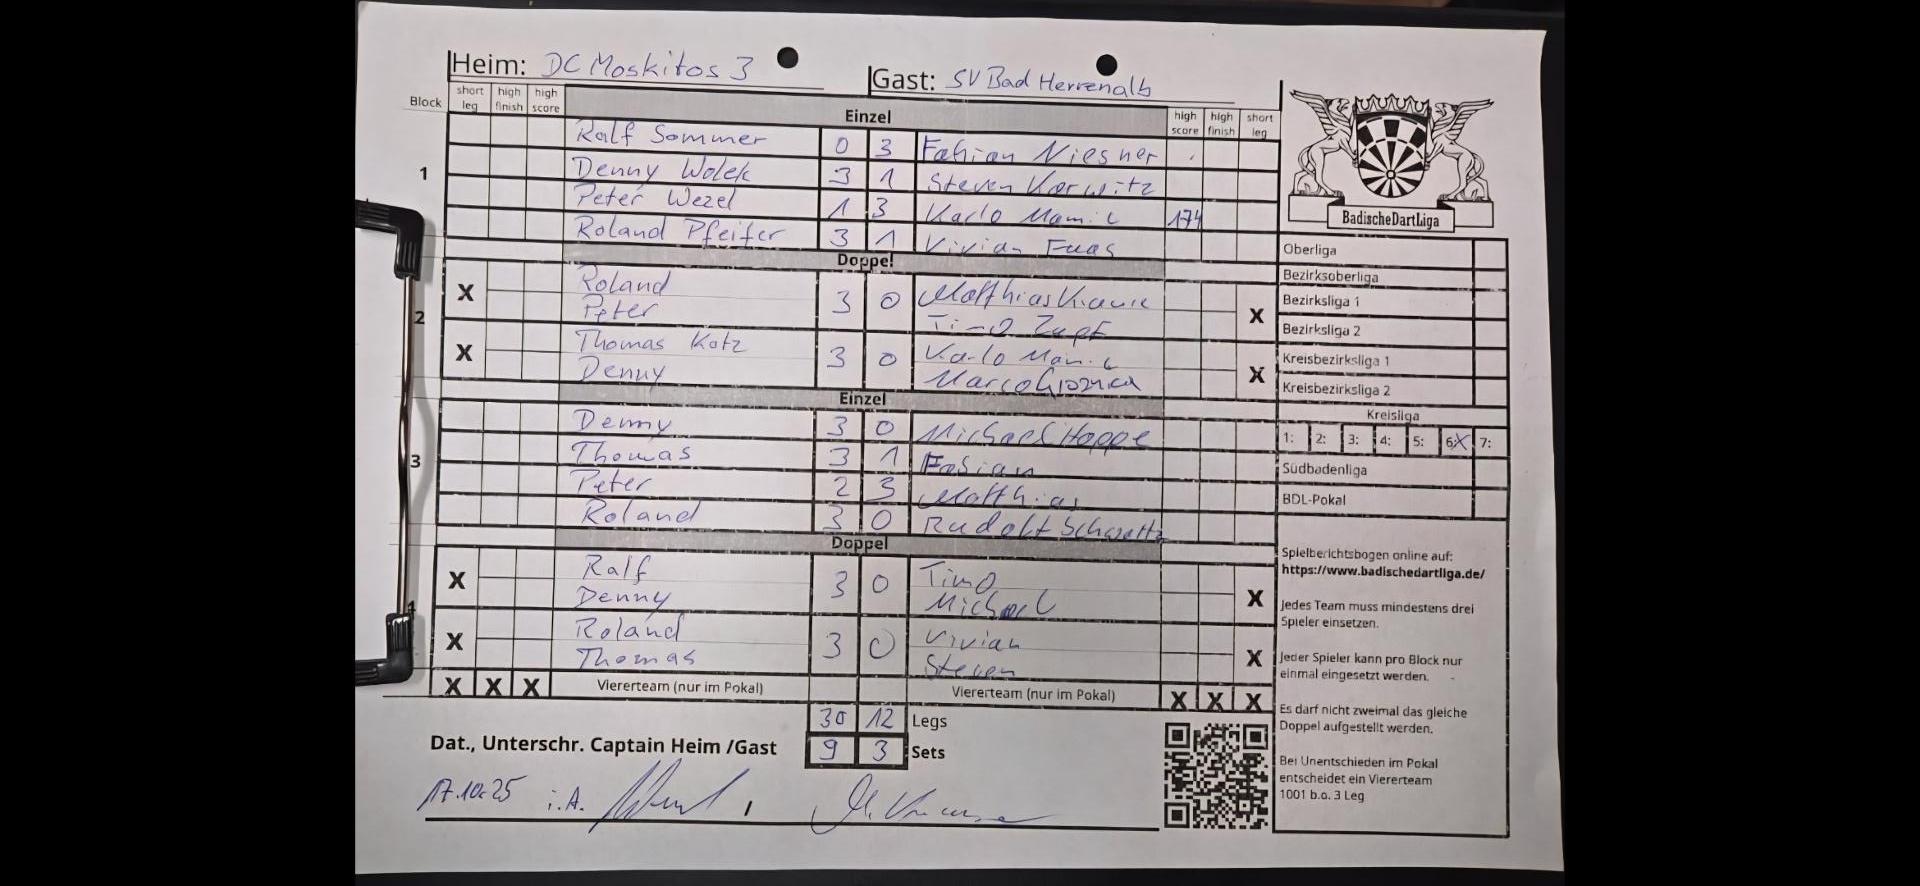 Heim: DC Moskitos 3 Gast: SV Bad Herrenalb
Block short leg high finish high score Einzel high score high finish short leg
1
Ralf Sommer 0 3 Fabian Niesner
Denny Wolek 3 1 Steven Korwitz
Peter Wezel 1 3 Karlo Mamic 174
Roland Pfeifer 3 1 Vivian Faas
Doppel
2
X Roland 3 0 Matthias Krause X
Peter Timo Zupf
X Thomas Kotz 3 0 Karlo Mamic X
Denny Marco
Einzel
3
Denny 3 0 Michael Hoppe
Thomas 3 1 Fabian
Peter 2 3 Matthias
Roland 3 0 Rudolf
Doppel
4
X Ralf 3 0 Timo X
Denny Michael
X Roland 3 0 Vivian X
Thomas Steven
X X X Viererteam (nur im Pokal) Viererteam (nur im Pokal) X X X
30 12 Legs
9 3 Sets
Dat., Unterschr. Captain Heim /Gast
17.10.25 i.A.
BadischeDartLiga
Oberliga
Bezirksoberliga
Bezirksliga 1
Bezirksliga 2
Kreisbezirksliga 1
Kreisbezirksliga 2
Kreisliga
1: 2: 3: 4: 5: 6:X 7:
Südbadenliga
BDL-Pokal
Spielberichtsbogen online auf:
https://www.badischedartliga.de/
Jedes Team muss mindestens drei
Spieler einsetzen.
Jeder Spieler kann pro Block nur
einmal eingesetzt werden.
Es darf nicht zweimal das gleiche
Doppel aufgestellt werden.
Bei Unentschieden im Pokal
entscheidet ein Viererteam
1001 b.o. 3 Leg